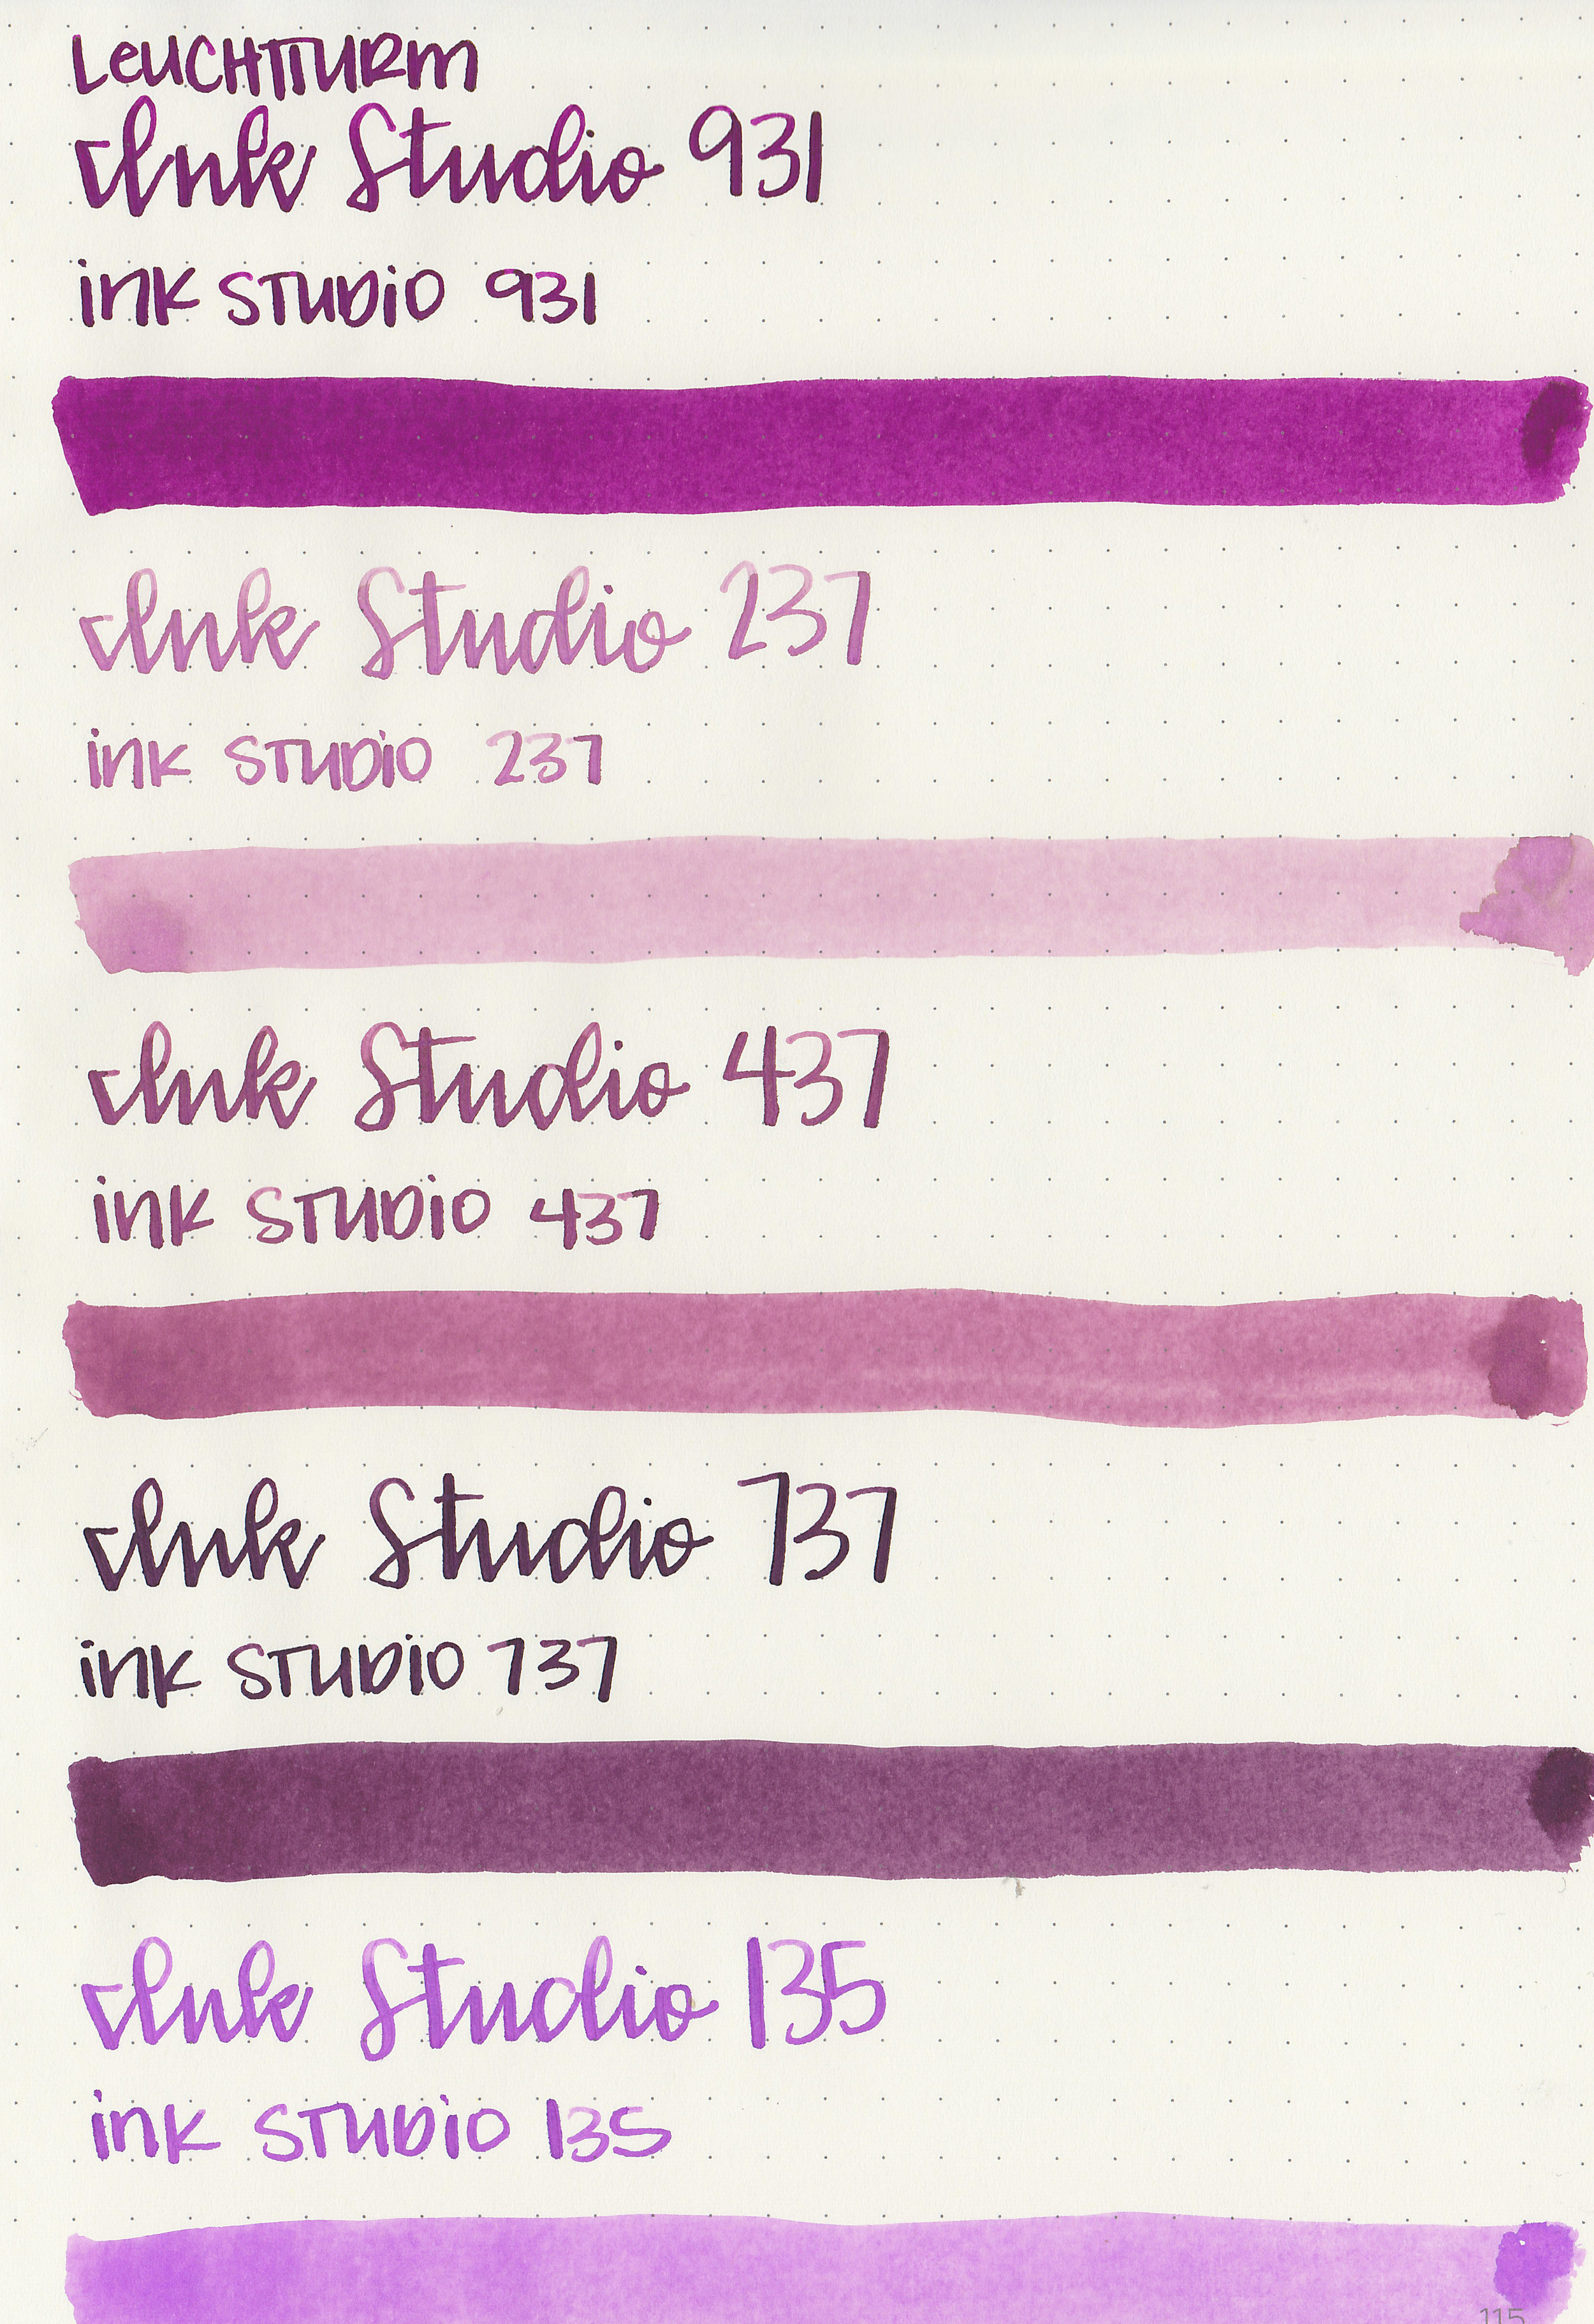 LeUCHTTURM
Ink Studio 931
ink STUDiO 931
Ink Studio 237
ink STUDiO 237
Ink Studio 437
ink STUDiO 437
Ink Studio 737
ink STUDiO 737
Ink Studio 135
ink STUDiO 135
115